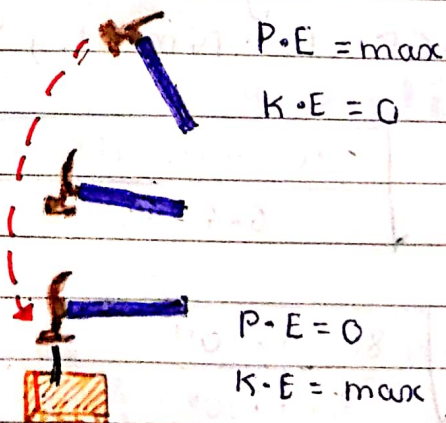 P.E = max
K.E = 0
P.E = 0
K.E = max